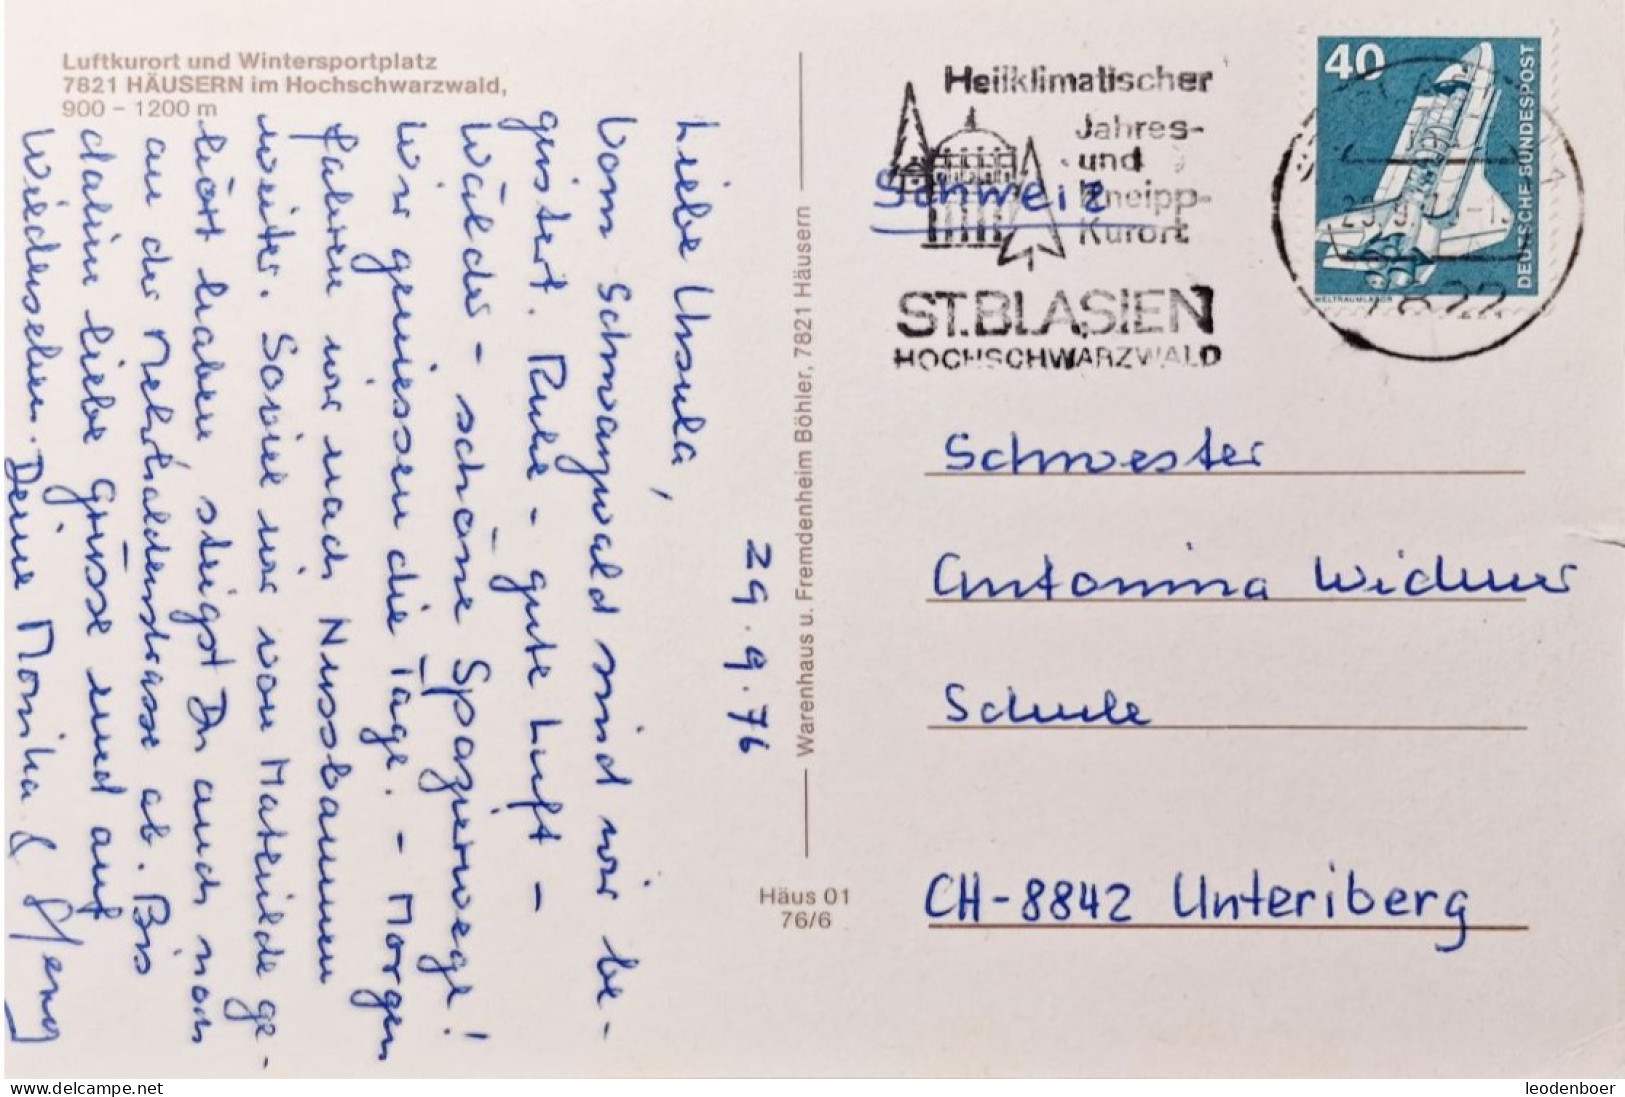 Luftkurort und Wintersportplatz
7821 HÄUSERN im Hochschwarzwald,
900 – 1200 m
29.9.76
Liebe Ursula,
Vom Schwarzwald sind wir be-
geistert. Ruhe - gute Luft -
Wälder - schöne Spazierwege!
Wir geniessen die Tage. - Morgen
fahren wir nach Nussbaumen
weiter. Soviel wir von Mathilde ge-
hört haben, steigst Du auch noch
an der Mehrhaldenstrasse ab. Bis
dahin liebe Grüsse und auf
Wiedersehen. Deine Monika &
Warenhaus u. Fremdenheim Böhler, 7821 Häusern
Häus 01
76/6
Heilklimatischer
Jahres-
und
Kneipp-
Kurort
ST.BLASIEN
HOCHSCHWARZWALD
40
DEUTSCHE BUNDESPOST
WELTRAUMLABOR
7822
Schweiz
Schwester
Antonina Widmer
Schule
CH-8842 Unteriberg
delcampe.net
leodenboer